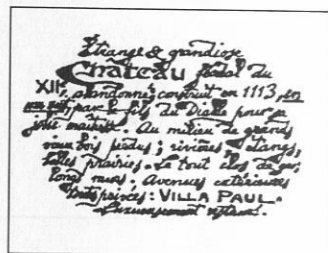 Étrange & grandiose
Château féodal du
XIIe abandonné, construit en 1113, en
par le fils du Diable pour
Au milieu de grands
vieux bois perdus ; rivières étangs,
belles prairies. Le tout clos de
longs murs. Avenues extérieures
princes : VILLA PAUL.